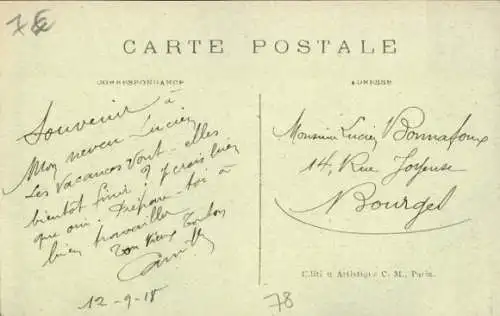 78
CARTE POSTALE
CORRESPONDANCE
ADRESSE
Souvenir à
Mon neveu Lucien
Les Vacances Vont-elles
bientôt finir ? Je crois bien
que oui. Prépare-toi à
bien travailler
Ton Vieux Tonton
12-9-18
Monsieur Lucien Bonnafoux
14, Rue Joyeuse
Bourges
Editi n Artistique C. M., Paris.
78